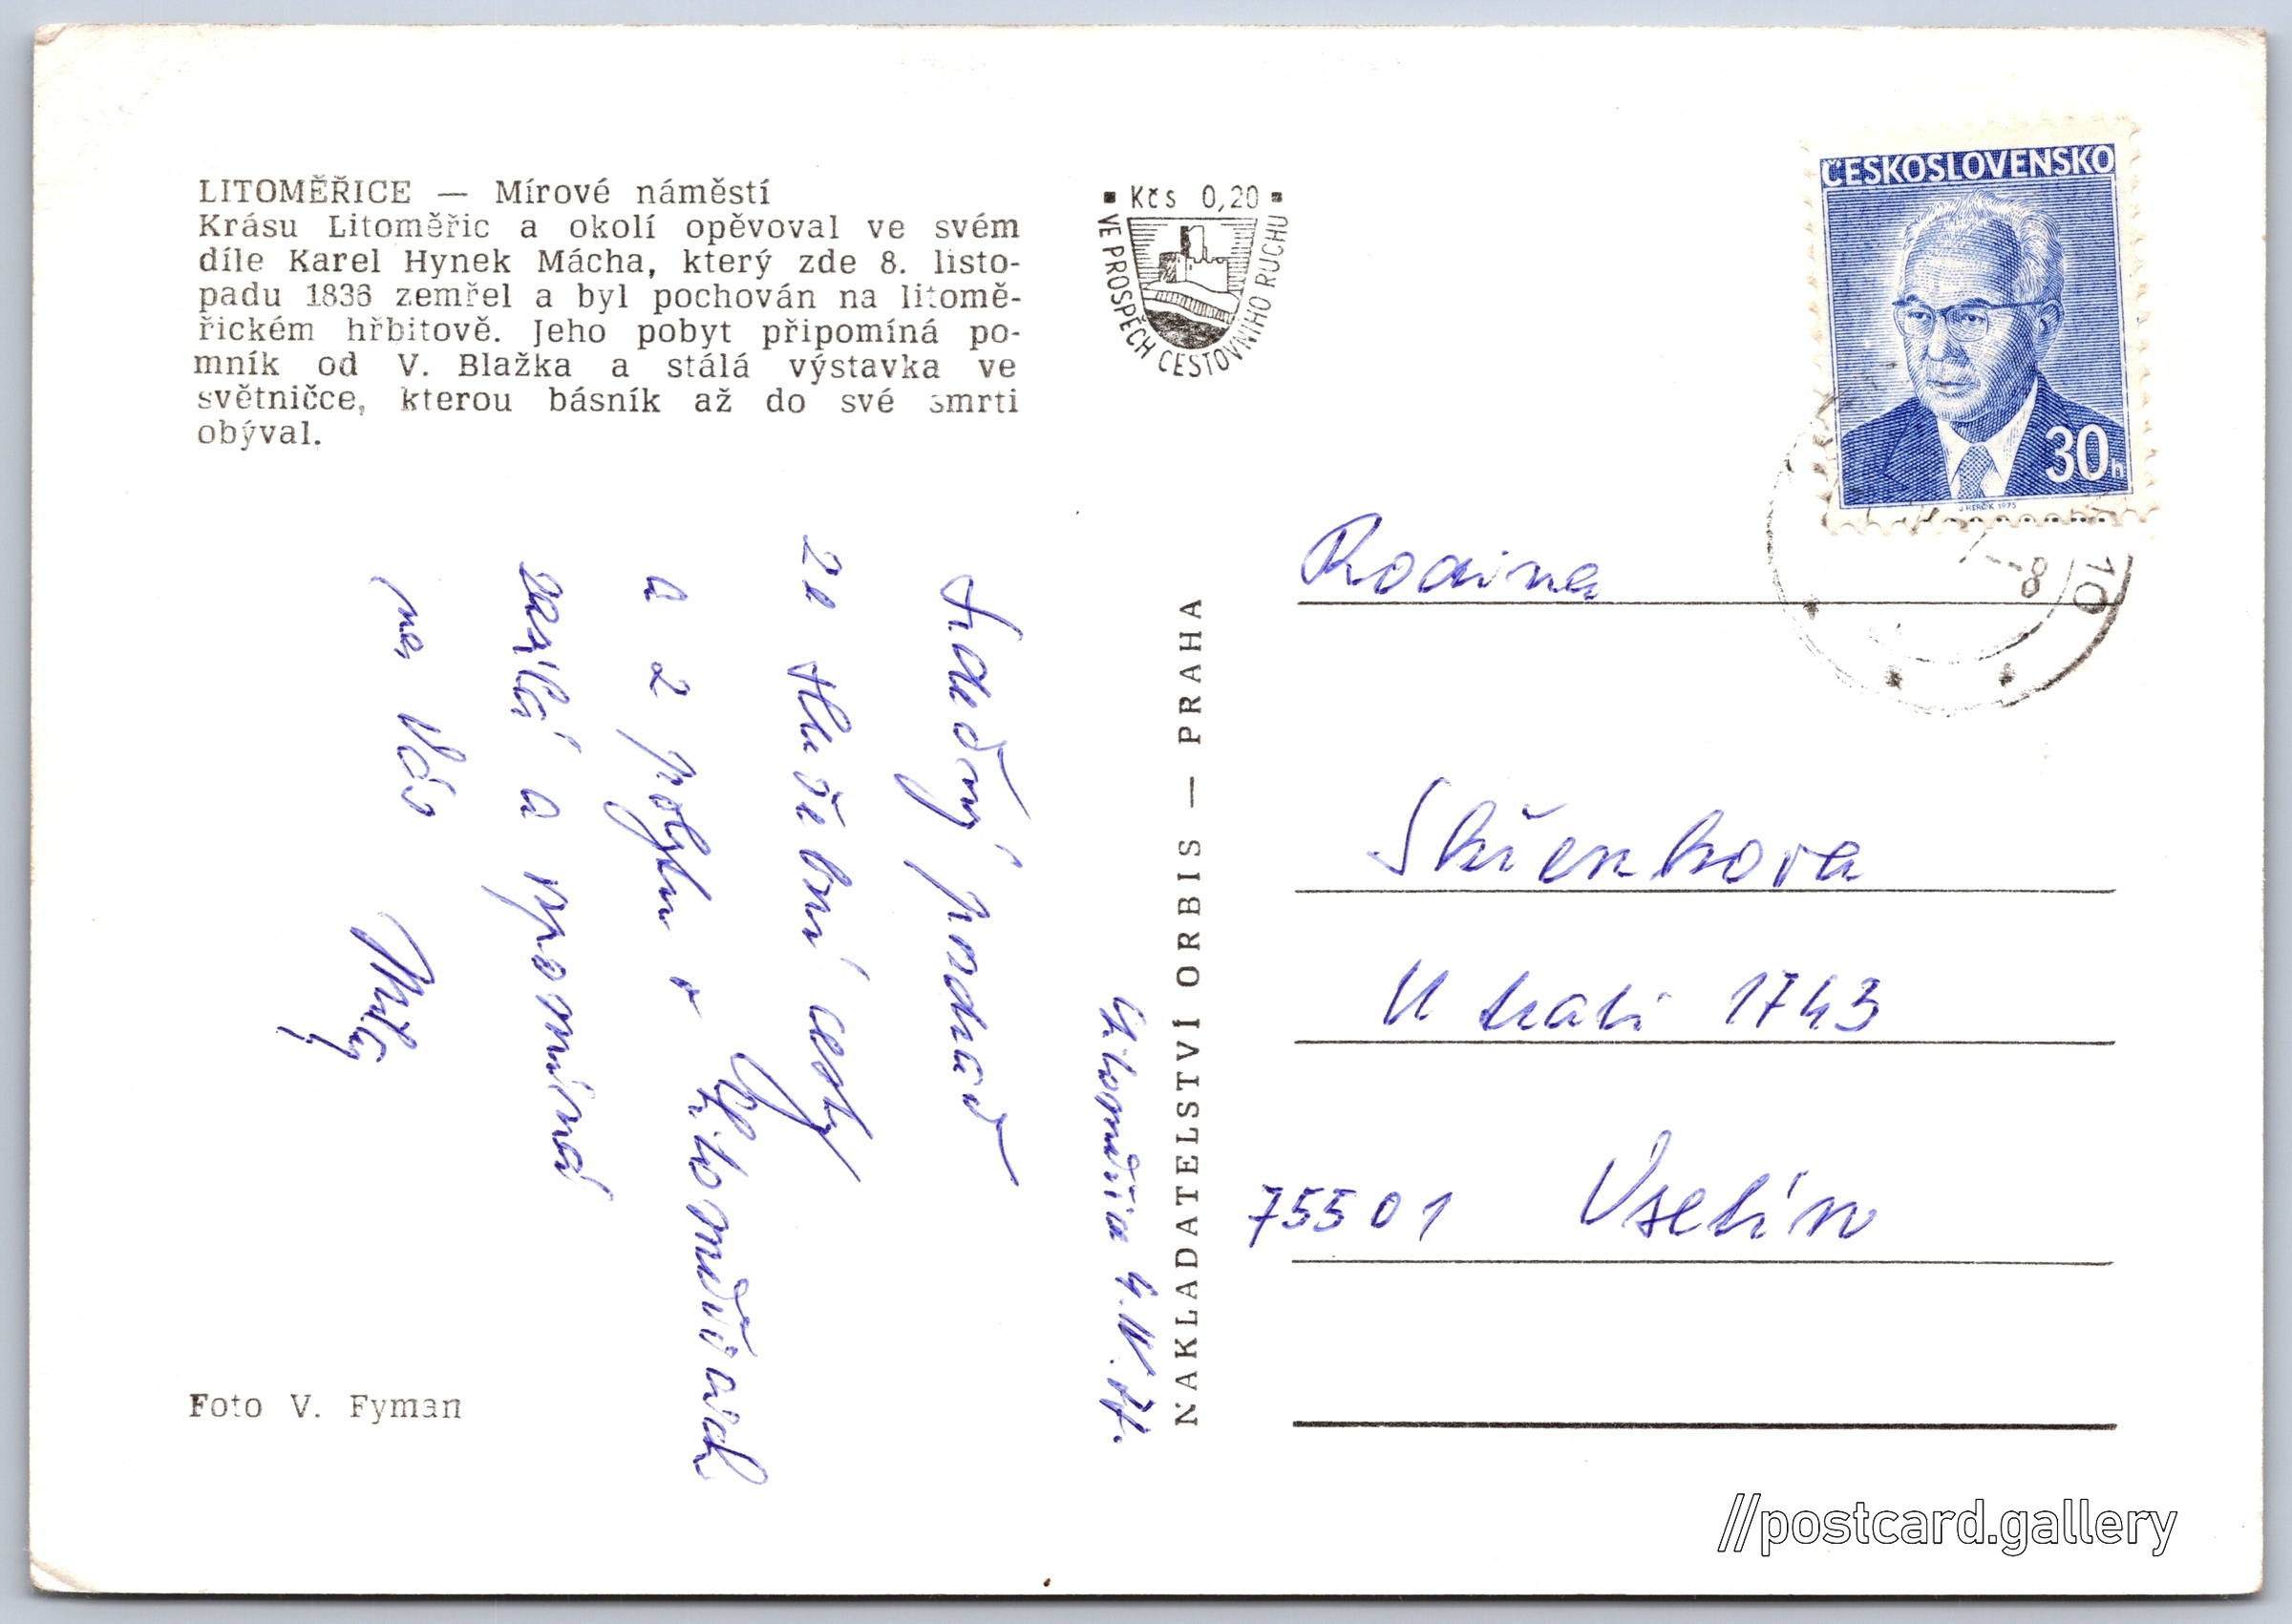 LITOMĚŘICE — Mírové náměstí
Krásu Litoměřic a okolí opěvoval ve svém
díle Karel Hynek Mácha, který zde 8. listo-
padu 1836 zemřel a byl pochován na litomě-
řickém hřbitově. Jeho pobyt připomíná po-
mník od V. Blažka a stálá výstavka ve
světničce, kterou básník až do své smrti
obýval.
Foto V. Fyman
Kčs 0,20
VE PROSPĚCH CESTOVNÍHO RUCHU
NAKLADATELSTVÍ ORBIS — PRAHA
ČESKOSLOVENSKO
30h
J. HERČÍK 1975
10
-8
Litoměřice 4.
Srdečný pozdrav
ze služební cesty
a z pobytu v Litoměřicích
zasílá a vzpomíná
na Vás
Rodina
U trati 1743
75501 Vsetín
//postcard.gallery